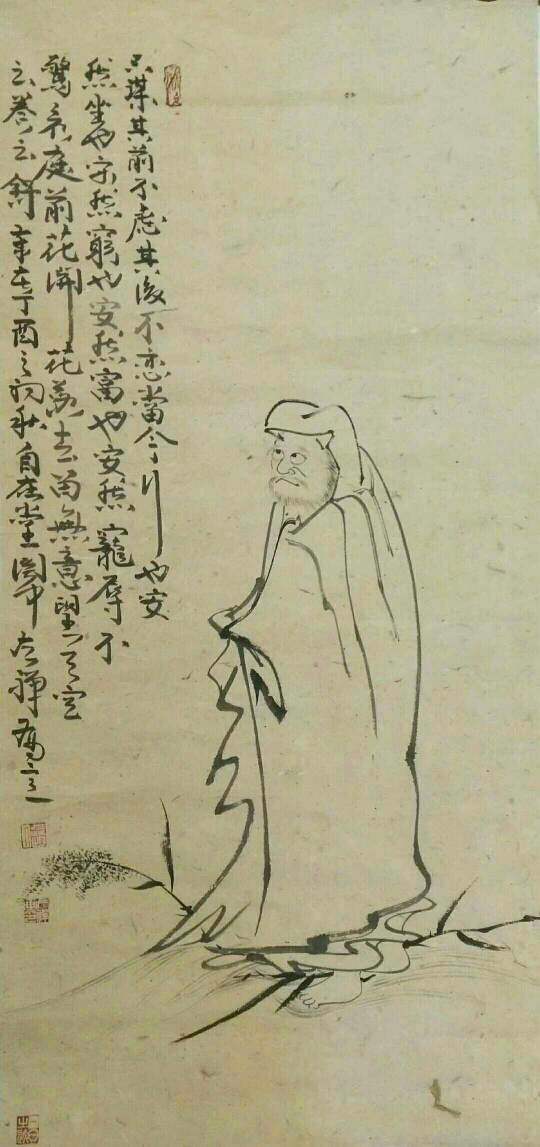 不謀其前不慮其後不恋當今行也安
然坐也安然窮也安然富也安然寵辱不
驚看庭前花開花落去留無意望天空
云卷云舒在丁酉之初秋自在堂